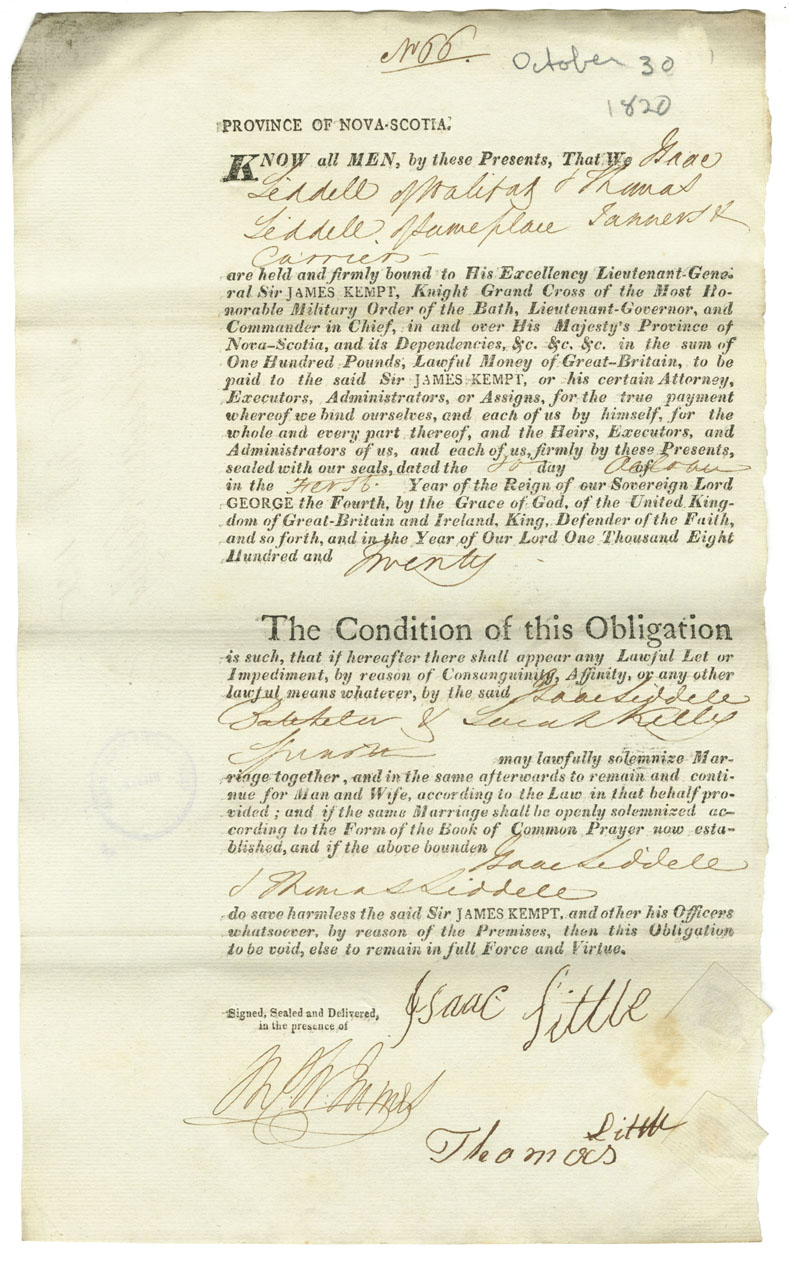 No 66.
October 30
1820
PROVINCE OF NOVA-SCOTIA.
KNOW all MEN, by these Presents, That We Isaac
Liddell of Halifax & Thomas
Liddell of same place Tanners &
Curriers
are held and firmly bound to His Excellency Lieutenant-Gene-
ral Sir JAMES KEMPT, Knight Grand Cross of the Most Ho-
norable Military Order of the Bath, Lieutenant-Governor, and
Commander in Chief, in and over His Majesty's Province of
Nova-Scotia, and its Dependencies, &c. &c. &c. in the sum of
One Hundred Pounds, Lawful Money of Great-Britain, to be
paid to the said Sir JAMES KEMPT, or his certain Attorney,
Executors, Administrators, or Assigns, for the true payment
whereof we bind ourselves, and each of us by himself, for the
whole and every part thereof, and the Heirs, Executors, and
Administrators of us, and each of us, firmly by these Presents,
sealed with our seals, dated the 30 day of October
in the First Year of the Reign of our Sovereign Lord
GEORGE the Fourth, by the Grace of God, of the United King-
dom of Great-Britain and Ireland, King, Defender of the Faith,
and so forth, and in the Year of Our Lord One Thousand Eight
Hundred and Twenty
The Condition of this Obligation
is such, that if hereafter there shall appear any Lawful Let or
Impediment, by reason of Consanguinity, Affinity, or any other
lawful means whatever, by the said Isaac Liddell
Batchelor & Sarah Kelly
Spinster may lawfully solemnize Mar-
riage together, and in the same afterwards to remain and conti-
nue for Man and Wife, according to the Law in that behalf pro-
vided; and if the same Marriage shall be openly solemnized ac-
cording to the Form of the Book of Common Prayer now esta-
blished, and if the above bounden Isaac Liddell
& Thomas Liddell
do save harmless the said Sir JAMES KEMPT, and other his Officers
whatsoever, by reason of the Premises, then this Obligation
to be void, else to remain in full Force and Virtue.
Signed, Sealed and Delivered,
in the presence of
Isaac Little
James
Thomas Little